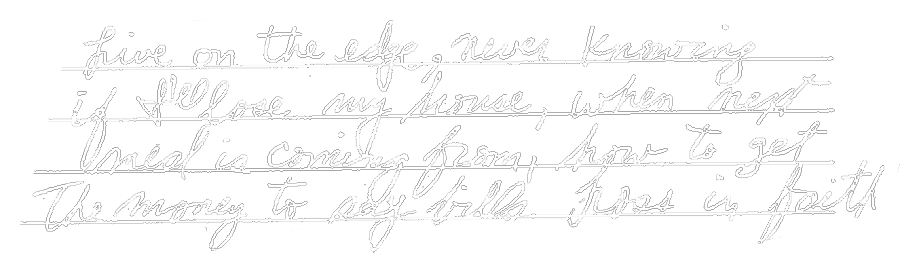 Live on the edge, never knowing
if I'll lose my house, when next
meal is coming from, how to get
The money to my bills. Lives in faith